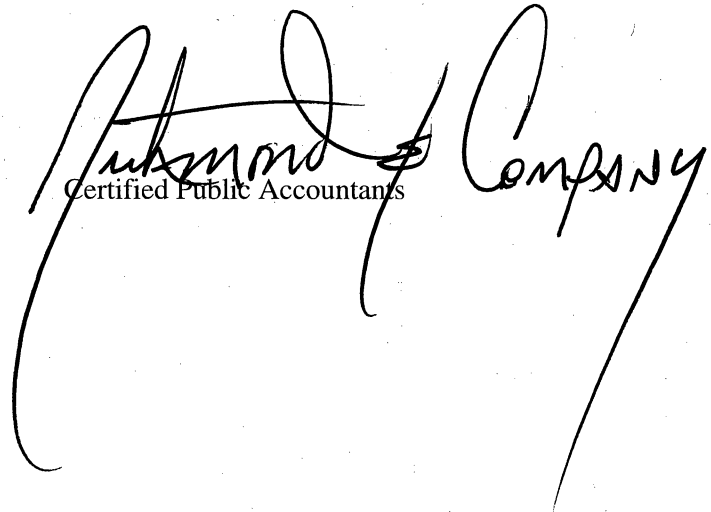 Richmond & Company
Certified Public Accountants